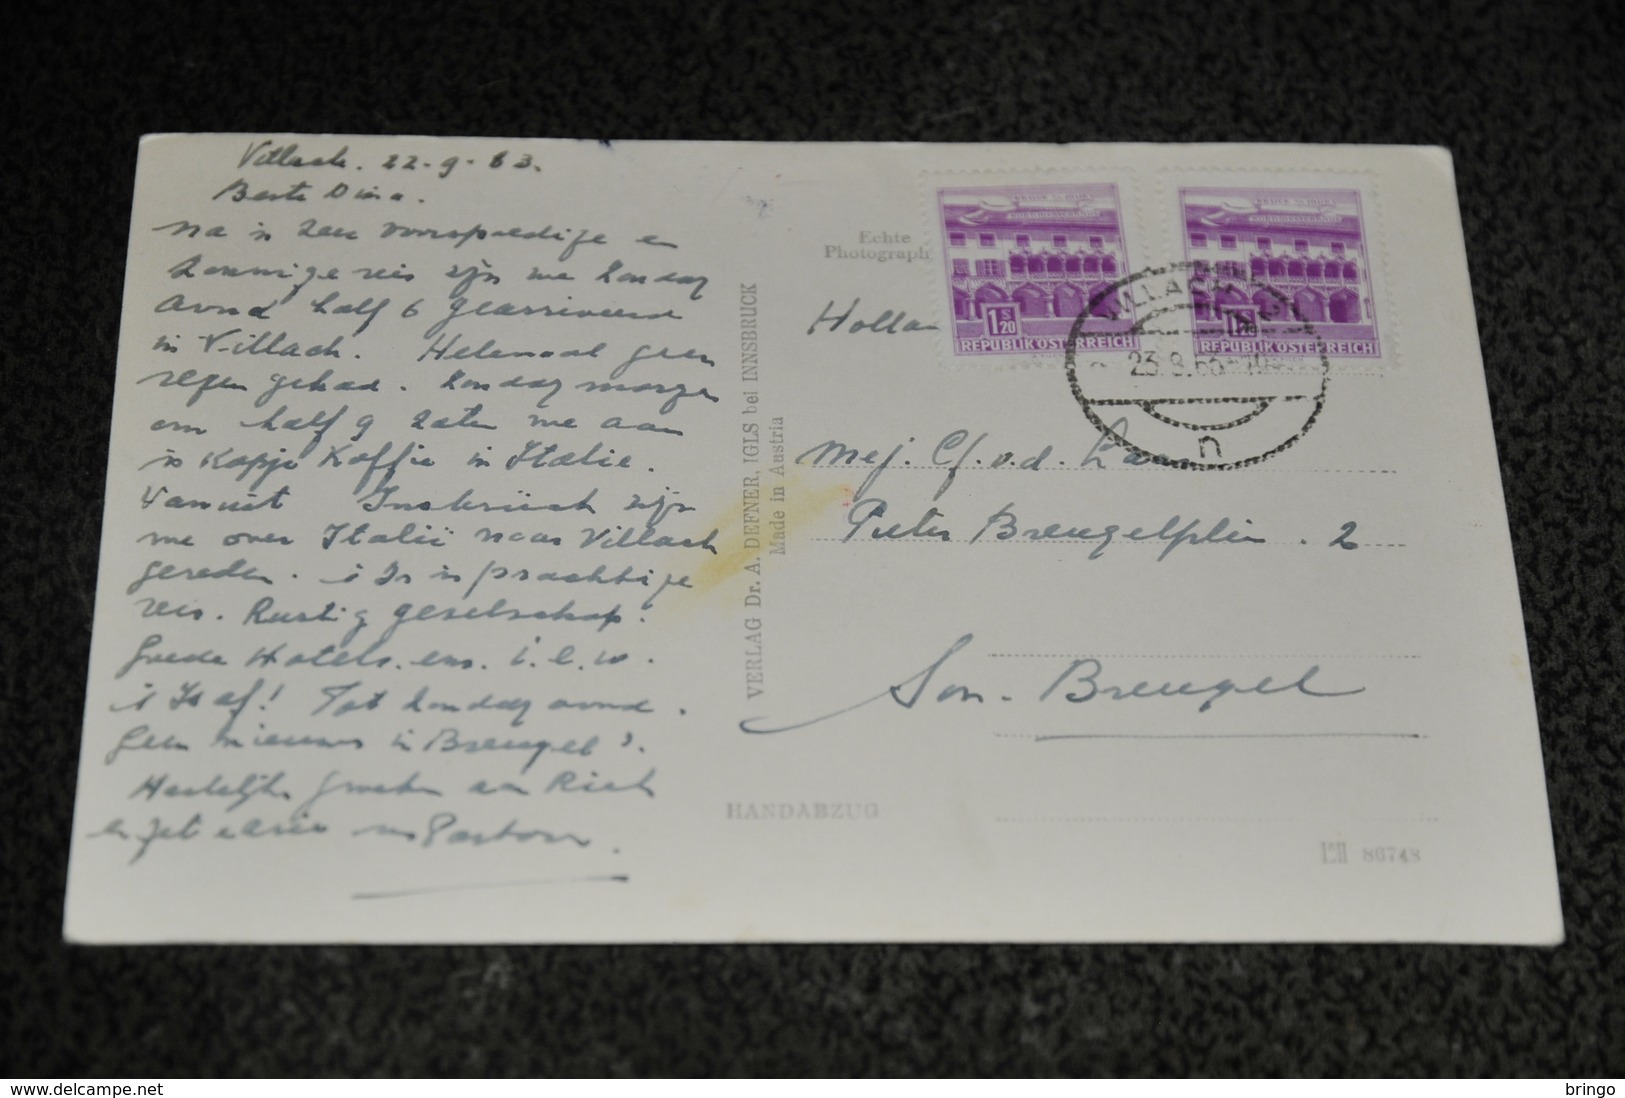 Villach. 22-9-63.
Beste Dina.
Na in zeer voorspoedige en
zonnige reis zijn we zondag
avond half 6 gearriveerd
in Villach. Helemaal geen
regen gehad. Zondag morgen
om half 9 zaten we aan
'n kopje koffie in Italie.
Vanuit Insbrück zijn
we over Italië naar Villach
gereden. 't Is 'n prachtige
reis. Rustig geselschap.
Goede Hotels. enz.
't Is af! Tot zondag avond.
Geen nieuws in Breugel?
Hartelijke groeten aan Riek
en Pastoor.
Echte
Photograph
Hollan
VERLAG Dr. A. DEFNER, IGLS bei INNSBRUCK
Made in Austria
1 S 20
REPUBLIK ÖSTERREICH
REPUBLIK ÖSTERREICH
VILLACH
n
Mej. v.d. Laan
Pieter Breugelplein. 2
Son-Breugel
HANDABZUG
86748
bringo